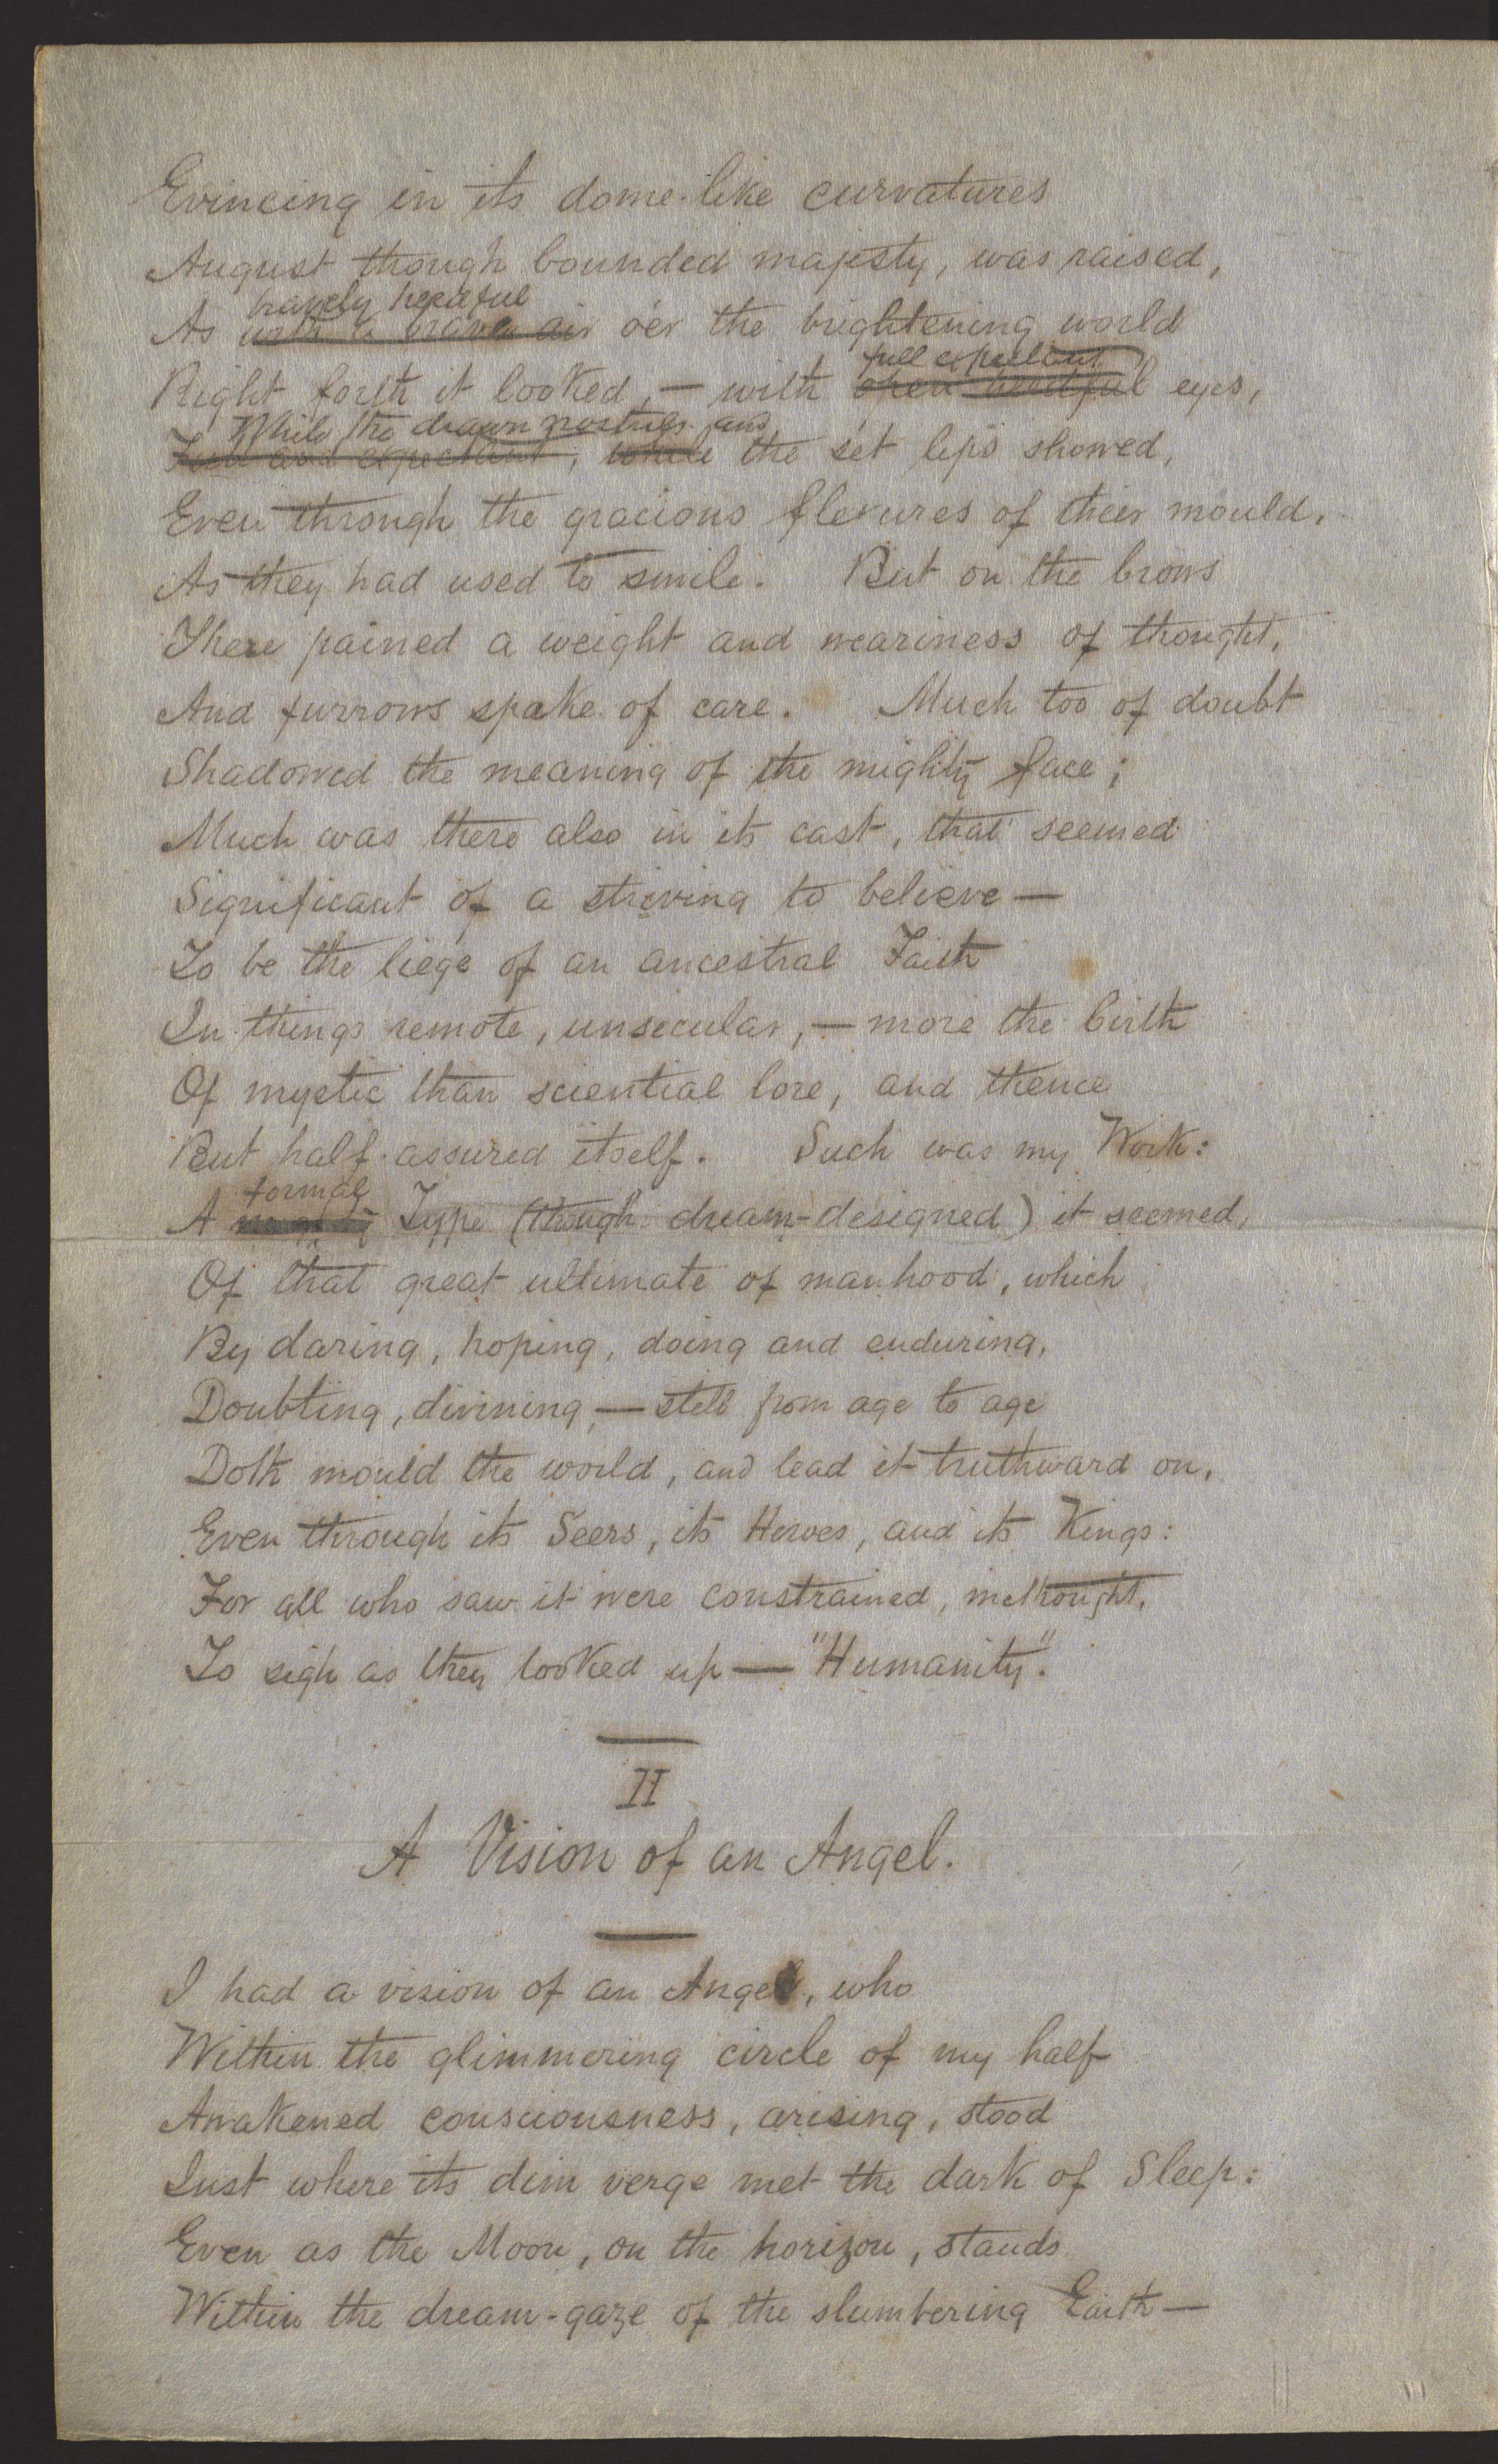 Evincing in its dome-like curvatures
August though bounded majesty, was raised,
bravely heedful
As with a brave air o'er the brightening world
full expectant
Right forth it looked, — with open heedful eyes,
While the drawn nostrils and
Full and expectant; while the set lips showed,
Even through the gracious flexures of their mould,
As they had used to smile. But on the brows
There pained a weight and weariness of thought,
And furrows spake of care. Much too of doubt
Shadowed the meaning of the mighty face;
Much was there also in its cast, that seemed
Significant of a striving to believe —
To be the liege of an ancestral Faith
In things remote, unsecular, — more the birth
Of mystic than sciential lore, and thence
But half-assured itself. Such was my Work:
formal
A Type (though dream-designed) it seemed,
Of that great ultimate of manhood, which
By daring, hoping, doing and enduring,
Doubting, divining, — still from age to age
Doth mould the world, and lead it truthward on,
Even through its Seers, its Heroes, and its Kings:
For all who saw it were constrained, methought,
To sigh as they looked up — "Humanity".
II
A Vision of an Angel.
I had a vision of an Angel, who
Within the glimmering circle of my half
Awakened consciousness, arising, stood
Just where its dim verge met the dark of Sleep:
Even as the Moon, on the horizon, stands
Within the dream-gaze of the slumbering Earth —